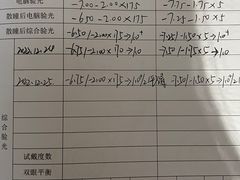 电脑验光 -7.00 -2.00×175 -7.75 -1.75×5
散瞳后电脑验光 -6.50 -2.00×175 -7.25 -1.50×5
散瞳后综合验光 -6.50/-2.00×175→1.0⁺ -7.25/-1.50×5→1.0⁺
-6.75/-2.00×170→1.0 -7.50/-1.75×5→1.0
2022.12.25 -6.75/-2.00×175→1.0 -7.50/-1.50×5→1.0
综合验光
试戴度数
双眼平衡